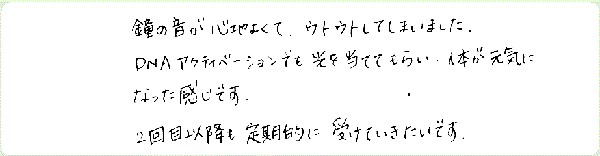 鐘の音が心地よくて、ウトウトしてしまいました。
DNAアクティベーションでも光を当ててもらい、体が元気に
なった感じです。
2回目以降も定期的に受けていきたいです。